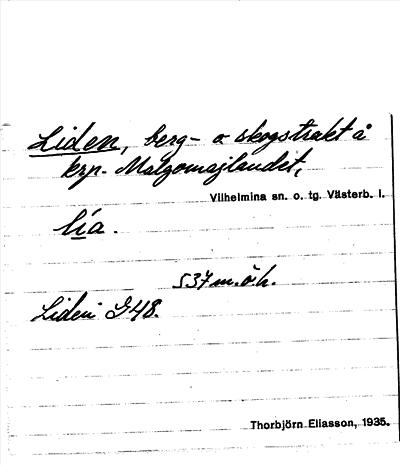 Liden, berg- o skogstrakt å
krp. Malgomajlandet,
Vilhelmina sn. o. tg. Västerb. l.
lía.
537 m. ö. h.
Liden G48.
Thorbjörn Eliasson, 1935.